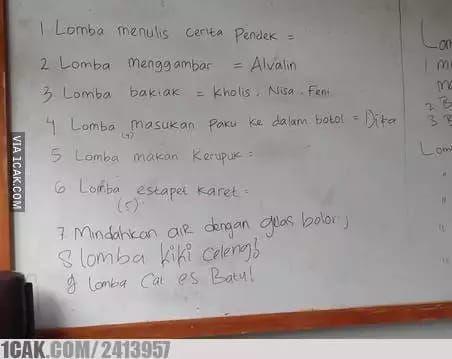 1 Lomba menulis cerita Pendek =
2 Lomba menggambar = Alvalin
3 Lomba bakiak = kholis, Nisa, Feni
4 Lomba masukan Paku ke dalam botol = Dika
(4)
5 Lomba makan Kerupuk =
6 Lomba estapet karet =
(5)
7 Mindahkan aiR dengan gelas bolor,
8 lomba kiki celeng
9 lomba Cat es Batu!
Lom
1 m
m
2 B
3 B
Lom
"
"
"
"
VIA 1CAK.COM
1CAK.COM/2413957